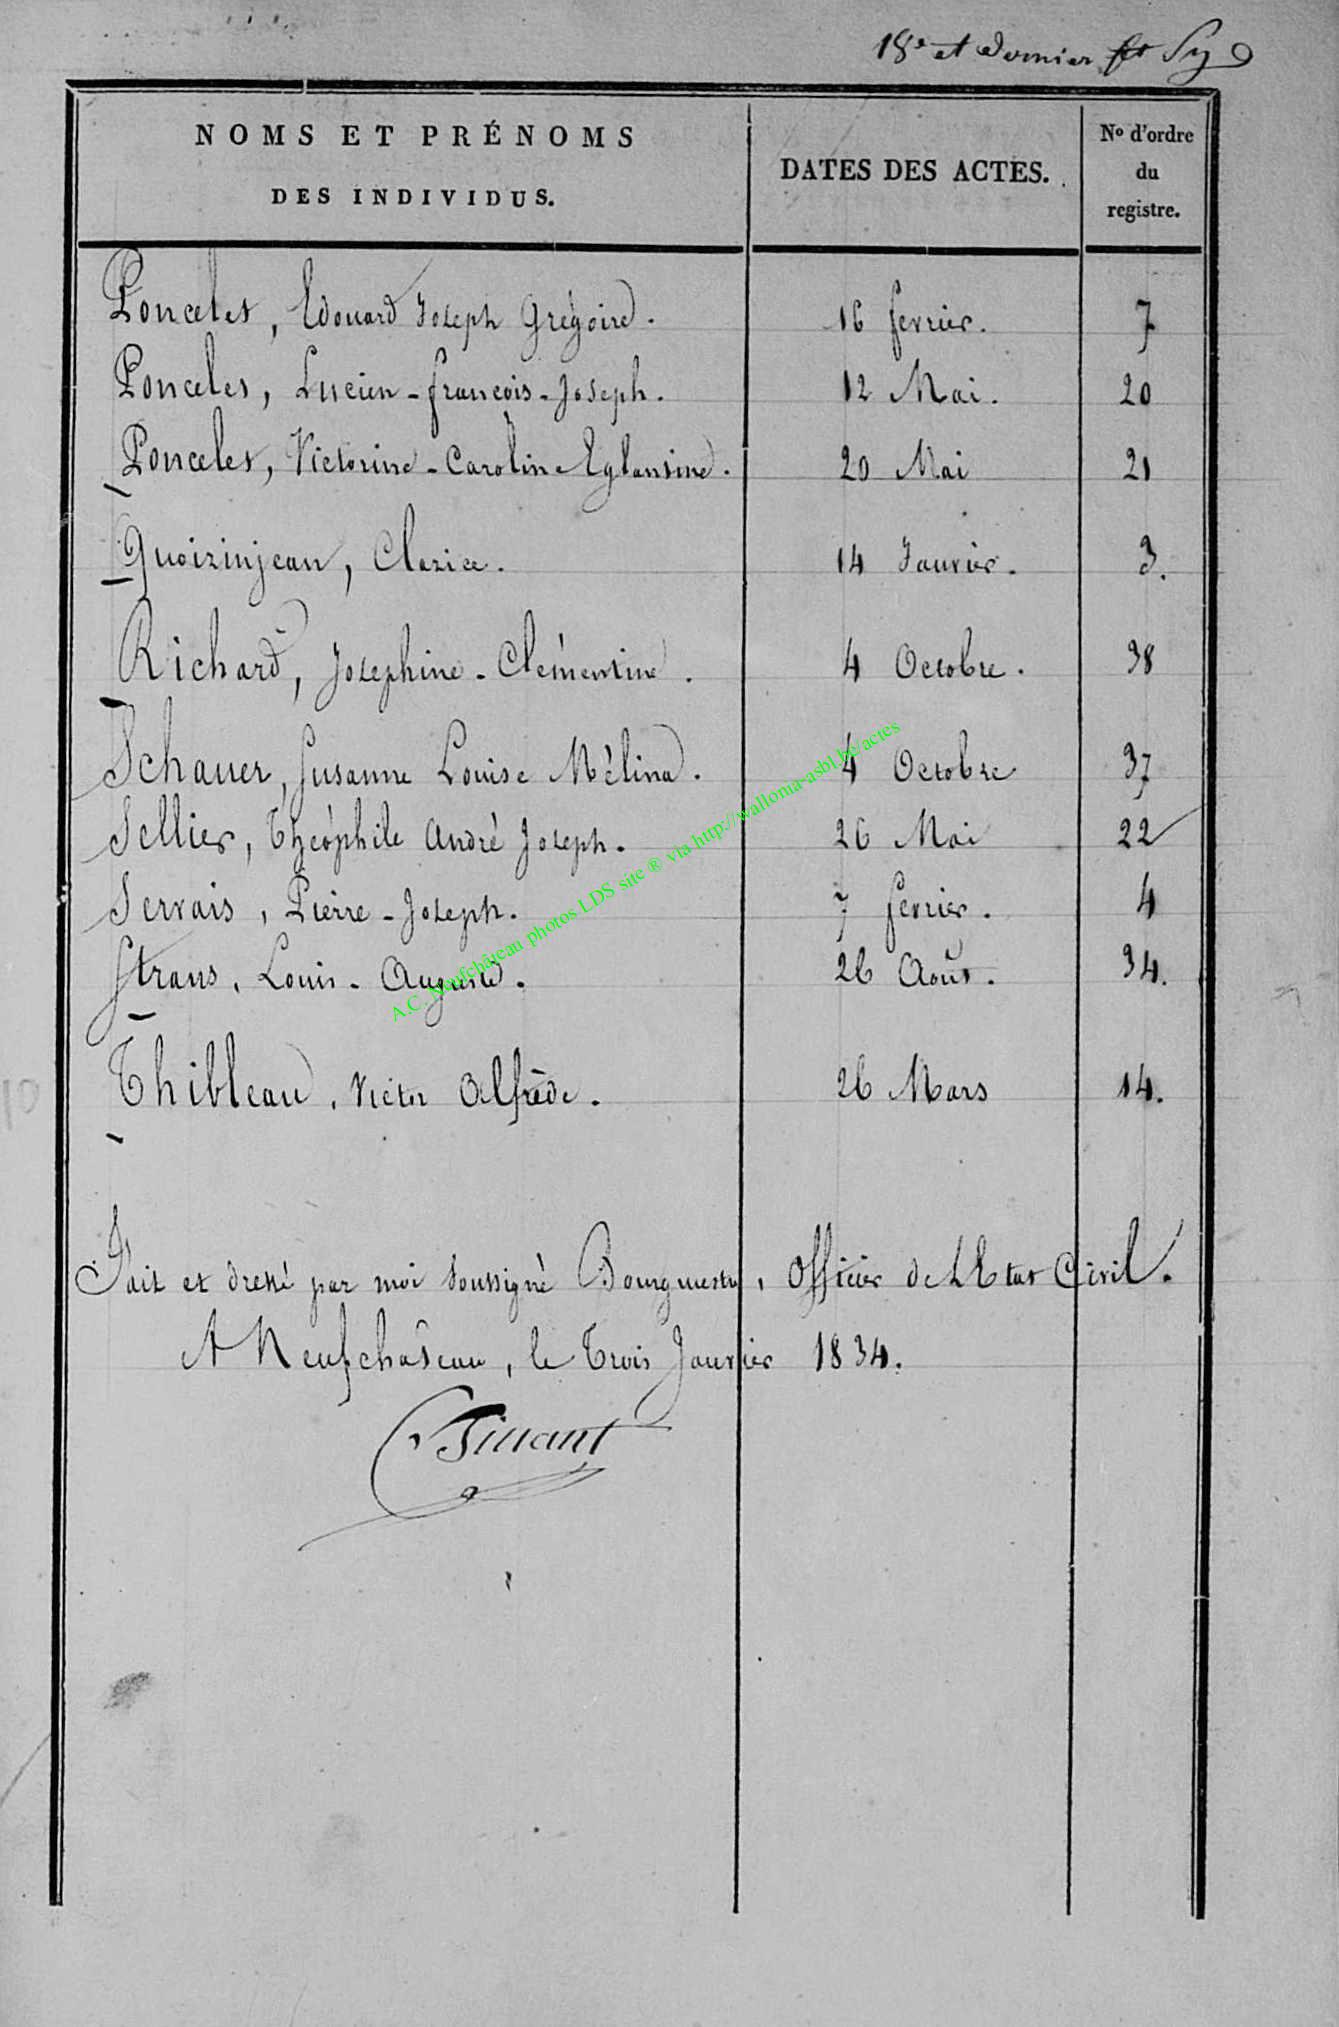 18e et dernier ft Sy
NOMS ET PRÉNOMS
DES INDIVIDUS.
DATES DES ACTES.
No d'ordre
du
registre.
Poncelet, Edouard Joseph Grégoire. 16 fevrier. 7
Poncelet, Lucien-francois-Joseph. 12 Mai. 20
Poncelet, Victorine-Caroline Eglantine. 20 Mai 21
Quoirinjean, Clarice. 14 Janvier. 3.
Richard, Josephine-Clémentine. 4 Octobre. 38
Schauer, Susanne Louise Mélina. 4 Octobre 37
Sellier, Théophile André Joseph. 26 Mai 22
Servais, Pierre-Joseph. 7 fevrier. 4
Strans, Louis-Auguste. 26 Août. 34.
Thibleau, Victor Alfrède. 26 Mars 14.
Fait et dressé par moi soussigné Bourguestre, Officier de L'Etat Civil.
A Neufchâteau, le Trois Janvier 1834.
A.C. Neufchâteau photos LDS site ® via http://wallonia-asbl.be/actes